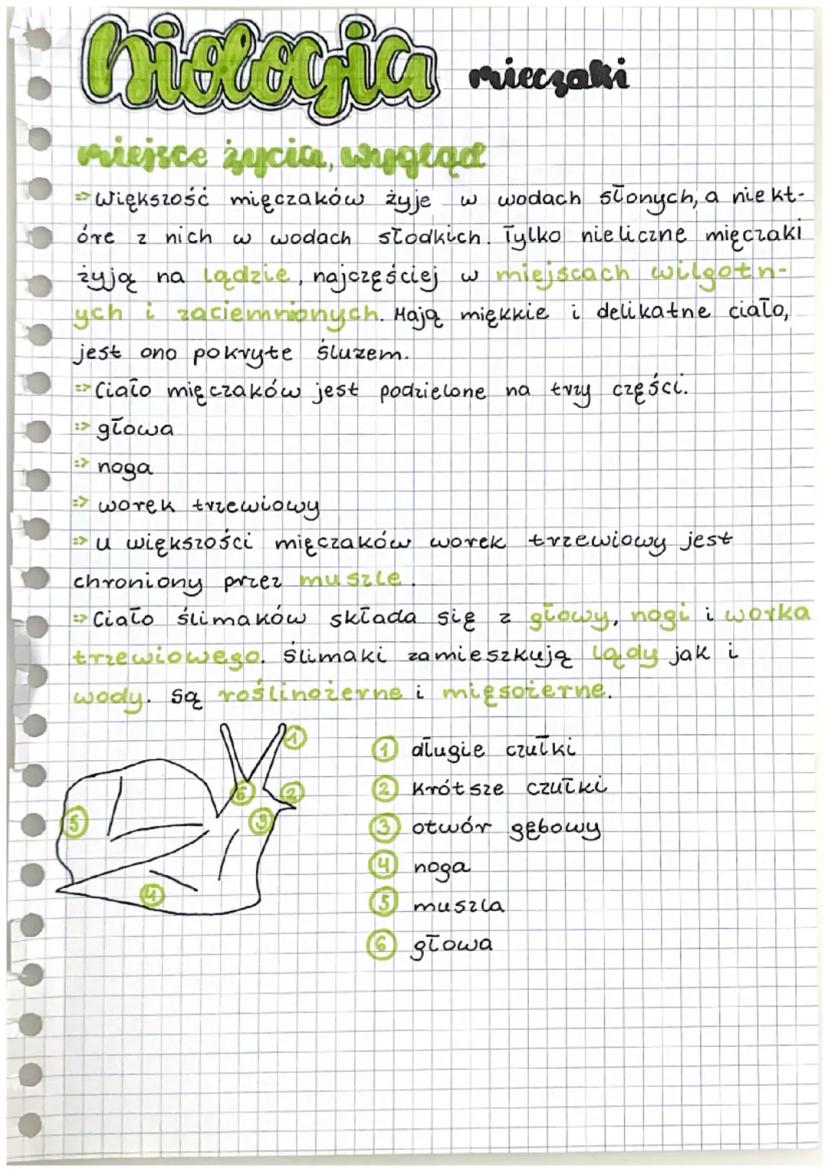 biologia mięczaki
miejsce życia, wygląd
=> Większość mięczaków żyje w wodach słonych, a niekt-
óre z nich w wodach słodkich. Tylko nieliczne mięczaki
żyją na lądzie, najczęściej w miejscach wilgotn-
ych i zaciemnionych. Mają miękkie i delikatne ciało,
jest ono pokryte śluzem.
=> Ciało mięczaków jest podzielone na trzy części.
=> głowa
=> noga
=> worek trzewiowy
=> u większości mięczaków worek trzewiowy jest
chroniony przez muszle.
=> Ciało ślimaków składa się z głowy, nogi i worka
trzewiowego. Ślimaki zamieszkują lądy jak i
wody. są roślinożerne i mięsożerne.
1
6 2
5 3
4
1 długie czułki
2 krótsze czułki
3 otwór gębowy
4 noga
5 muszla
6 głowa